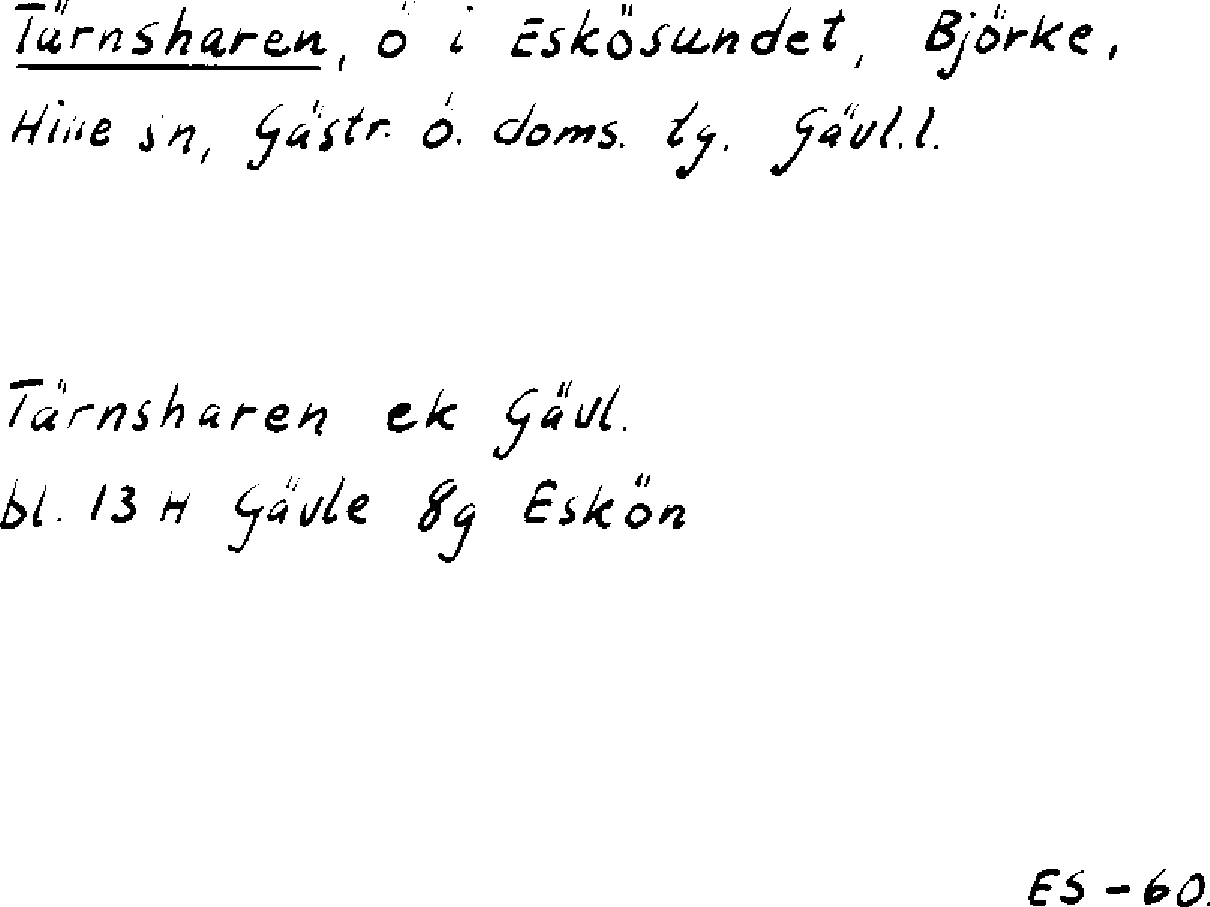 Tärnsharen, ö i Eskösundet, Björke,
Hille sn, Gästr. ö. doms. tg. Gävl.l.
Tärnsharen ek Gävl.
bl. 13 H Gävle 8g Eskön
ES - 60.